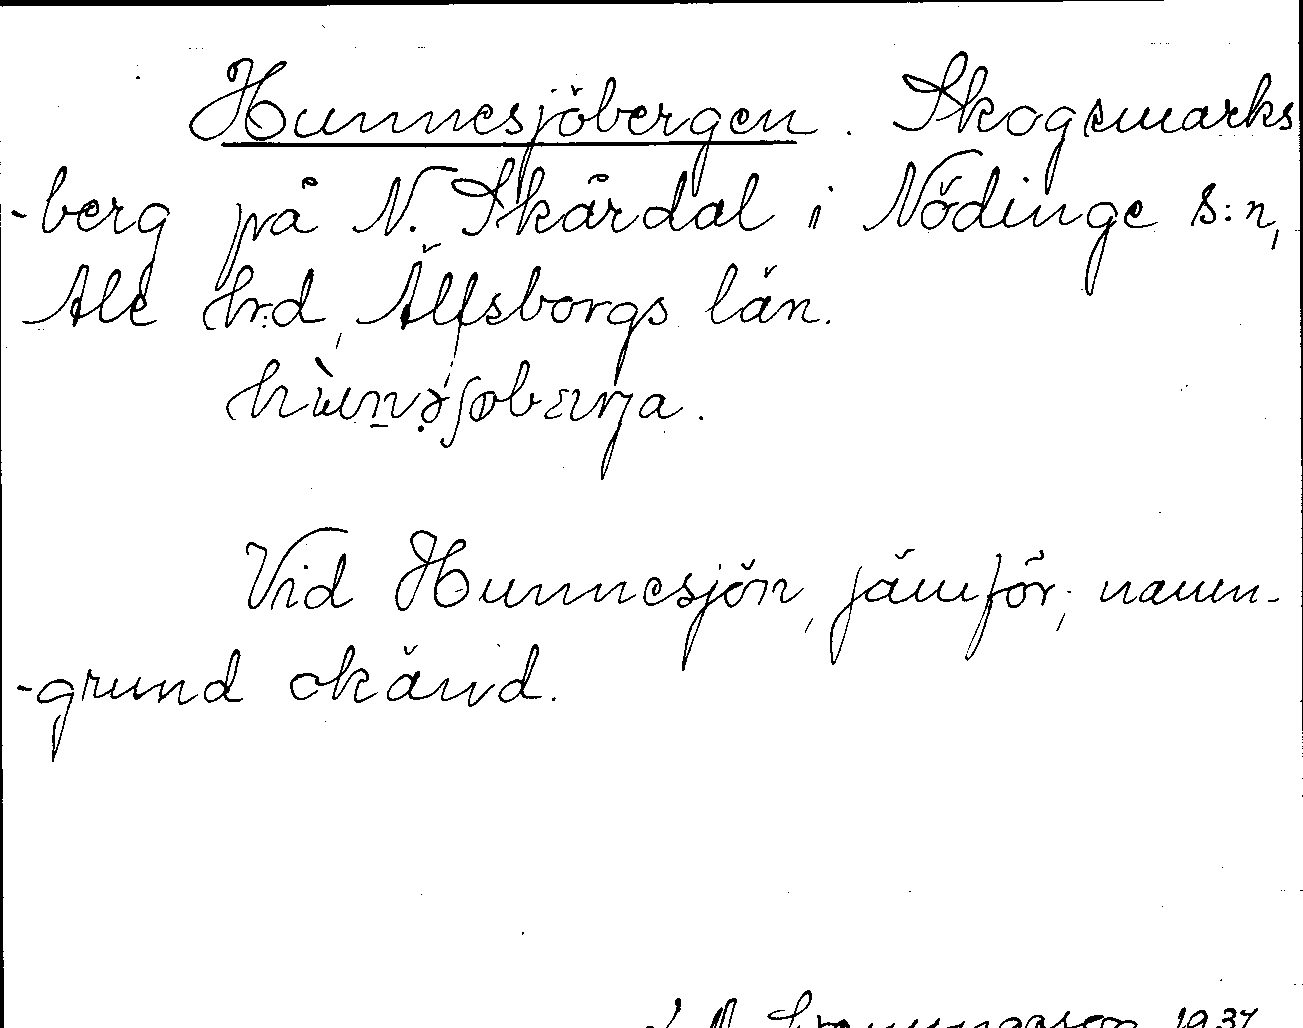 Hunnesjöbergen. Skogsmarks
-berg på N. Skårdal i Nödinge s:n,
Ale hrd, Älfsborgs län.

Vid Hunnesjön, jämför; namn-
-grund okänd.
1937